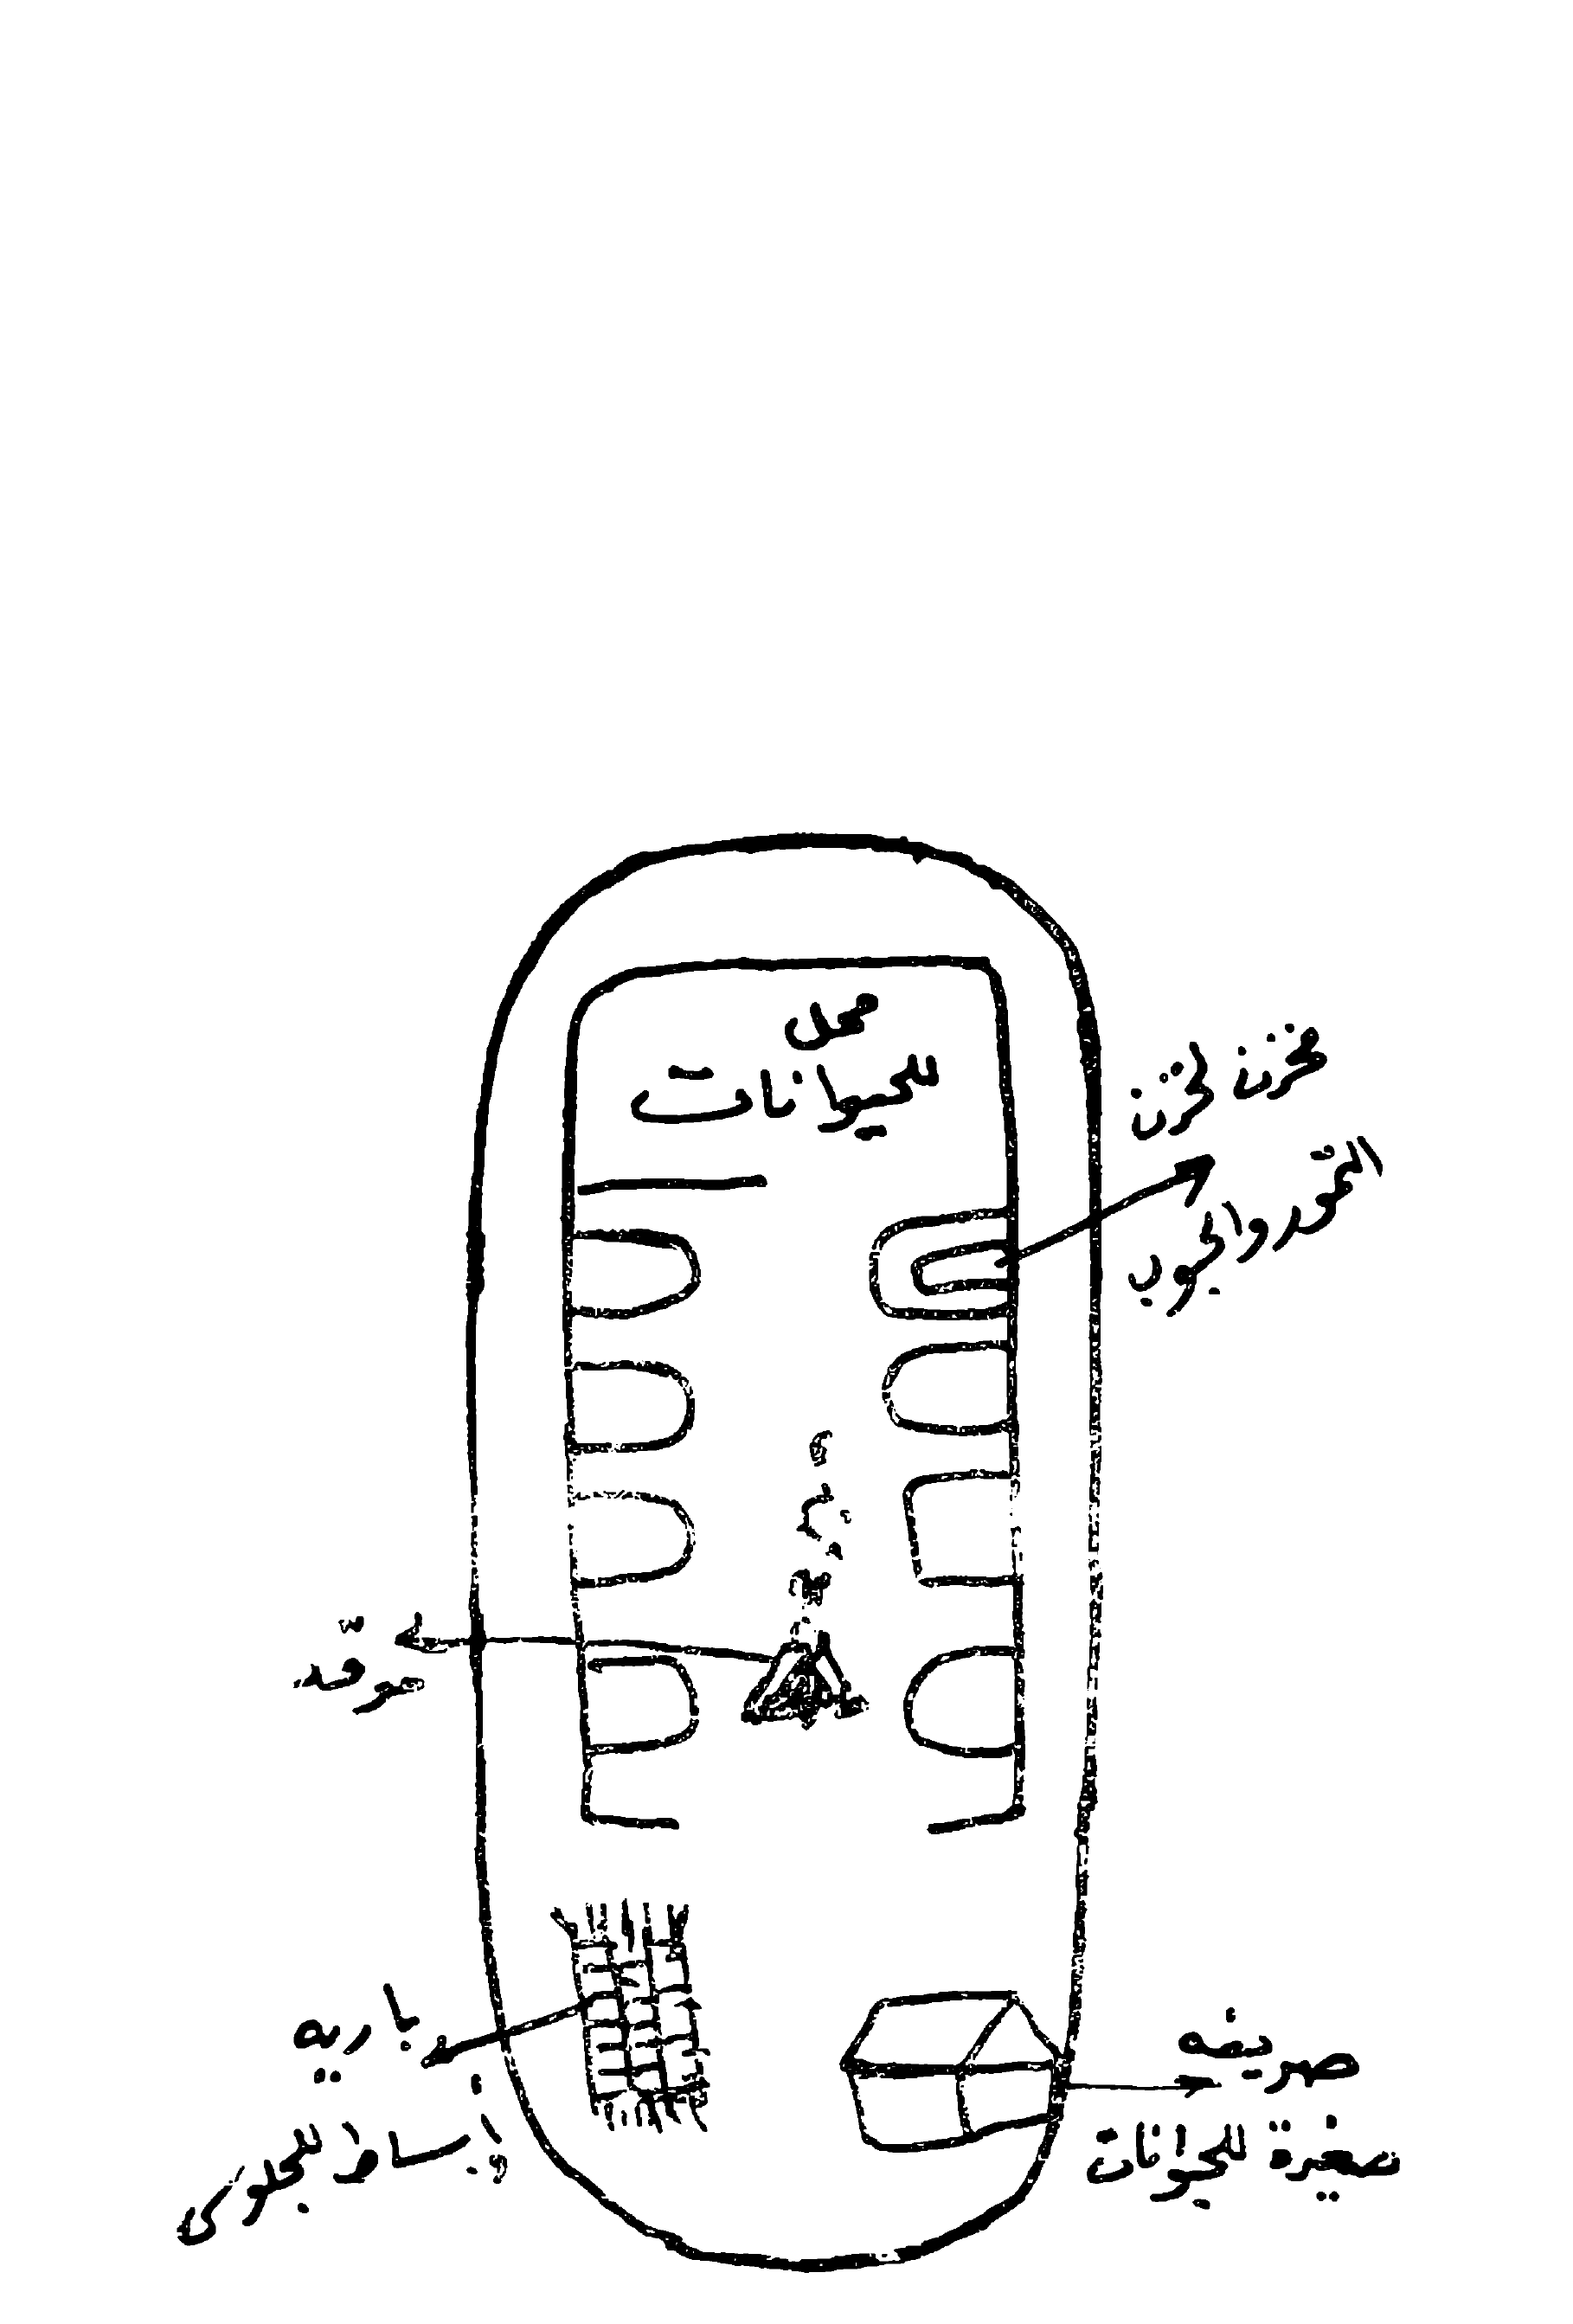 محل
للحيوانات
مخزن لخزن
التمور والحبوب
موقد
باريه
أو بساط للجلوس
صريفه
صغيرة للحيوانات